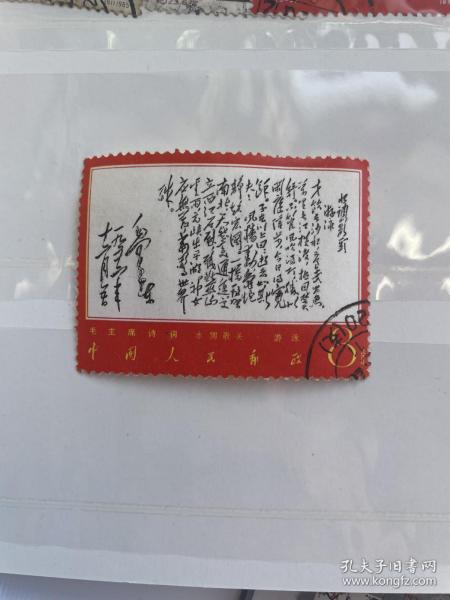 水调歌头
游泳
才饮长沙水又食武昌鱼
万里长江横渡极目楚
天舒不管风吹浪打胜似
闲庭信步今日得宽
馀子在川上曰逝者如斯
夫风樯动龟蛇
静起宏图一桥飞架
南北天堑变通途更
立西江石壁截断巫山
云雨高峡出平湖神女
应无恙当惊世界
殊
毛泽东
一九五六年
十二月五日
毛主席诗词 水调歌头 游泳
中国人民邮政 8分
孔夫子旧书网
www.kongfz.com